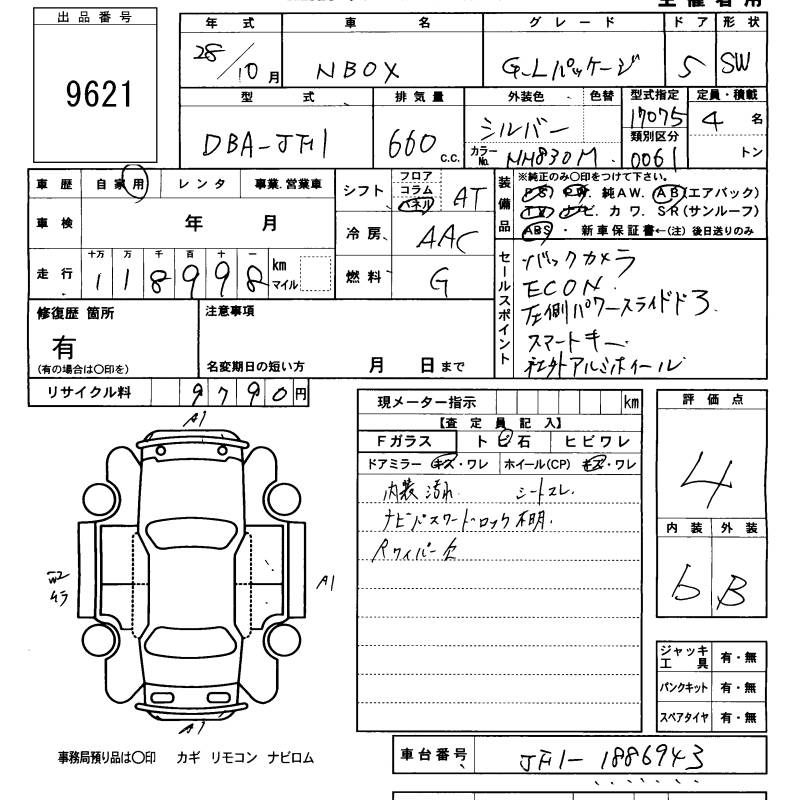 出品番号
9621
年式 車名 グレード ドア 形状
28/10月 NBOX G-Lパッケージ 5 SW
型式 排気量 外装色 色替 型式指定 定員・積載
DBA-JF1 660 C.C. シルバー 17075 4名
カラーNo. NH830M 類別区分 0061 トン
車歴 自家用 レンタ 事業.営業車
車検 年 月
走行 十万 万 千 百 十 一
118998 km マイル
シフト フロア コラム パネル AT
冷房 AAC
燃料 G
装備品 ※純正のみ〇印をつけて下さい。
PS PW. 純AW. AB(エアバック)
TV ナビ. カワ. SR(サンルーフ)
ABS ・ 新車保証書←(注) 後日送りのみ
セールスポイント
バックカメラ
ECON
左側パワースライドドア
スマートキー
社外アルミホイール
修復歴 箇所
有
(有の場合は〇印を)
注意事項
名変期日の短い方 月 日まで
リサイクル料 9790円
現メーター指示 km
【査定員記入】
Fガラス トビ石 ヒビワレ
ドアミラー キズ・ワレ ホイール(CP) キズ・ワレ
内装 汚れ シートスレ
ナビパスワードロック不明.
Rワイパー欠
評価点
4
内装 外装
b B
A1
W2
ムラ
A1
A1
ジャッキ 工具 有・無
パンクキット 有・無
スペアタイヤ 有・無
事務局預り品は〇印 カギ リモコン ナビロム
車台番号 JF1-1886943